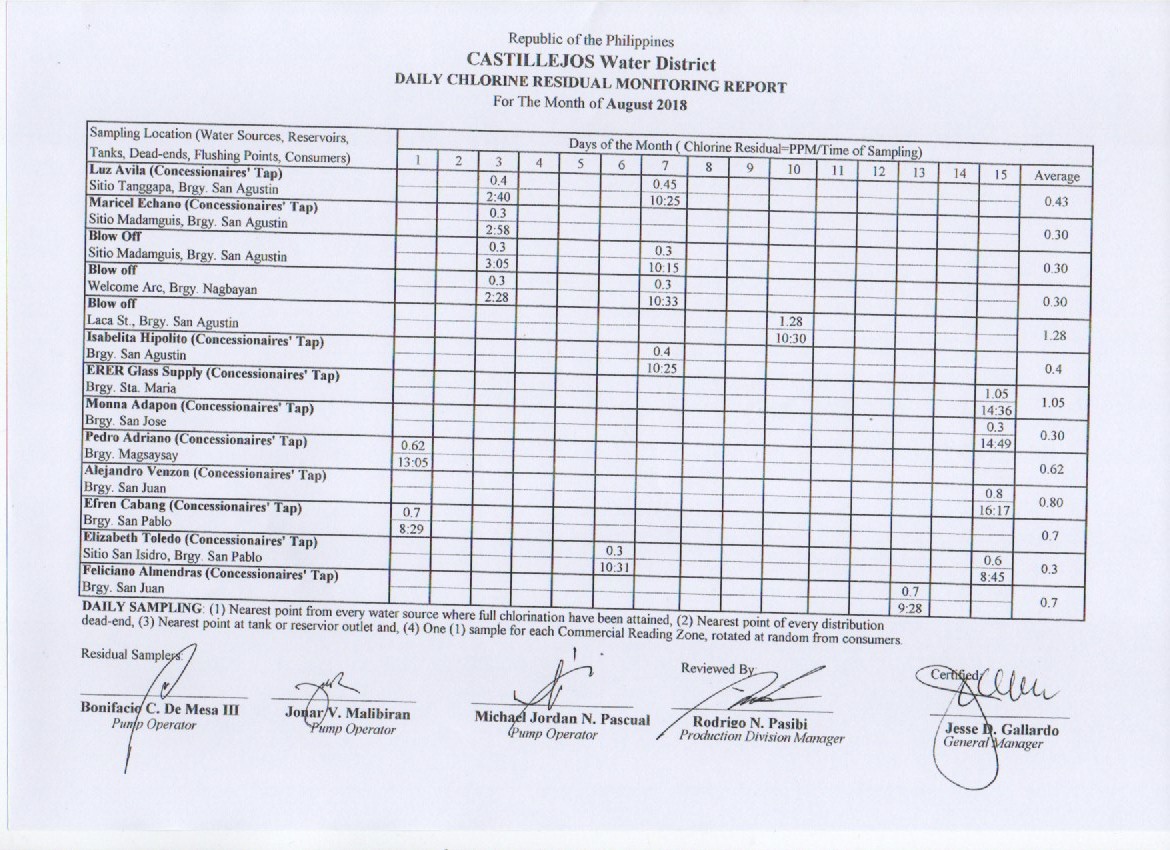 Republic of the Philippines
CASTILLEJOS Water District
DAILY CHLORINE RESIDUAL MONITORING REPORT
For The Month of August 2018
Sampling Location (Water Sources, Reservoirs, Tanks, Dead-ends, Flushing Points, Consumers)
Days of the Month ( Chlorine Residual=PPM/Time of Sampling)
1 2 3 4 5 6 7 8 9 10 11 12 13 14 15 Average
Luz Avila (Concessionaires' Tap)
Sitio Tanggapa, Brgy. San Agustin 0.4 0.45 0.43
2:40 10:25
Maricel Echano (Concessionaires' Tap)
Sitio Madamguis, Brgy. San Agustin 0.3 0.30
2:58
Blow Off
Sitio Madamguis, Brgy. San Agustin 0.3 0.3 0.30
3:05 10:15
Blow off
Welcome Arc, Brgy. Nagbayan 0.3 0.3 0.30
2:28 10:33
Blow off
Laca St., Brgy. San Agustin 1.28 1.28
10:30
Isabelita Hipolito (Concessionaires' Tap)
Brgy. San Agustin 0.4 0.4
10:25
ERER Glass Supply (Concessionaires' Tap)
Brgy. Sta. Maria 1.05 1.05
14:36
Monna Adapon (Concessionaires' Tap)
Brgy. San Jose 0.3 0.30
14:49
Pedro Adriano (Concessionaires' Tap)
Brgy. Magsaysay 0.62 0.62
13:05
Alejandro Venzon (Concessionaires' Tap)
Brgy. San Juan 0.8 0.80
16:17
Efren Cabang (Concessionaires' Tap)
Brgy. San Pablo 0.7 0.7
8:29
Elizabeth Toledo (Concessionaires' Tap)
Sitio San Isidro, Brgy. San Pablo 0.3 0.6 0.3
10:31 8:45
Feliciano Almendras (Concessionaires' Tap)
Brgy. San Juan 0.7 0.7
9:28
DAILY SAMPLING: (1) Nearest point from every water source where full chlorination have been attained, (2) Nearest point of every distribution
dead-end, (3) Nearest point at tank or reservior outlet and, (4) One (1) sample for each Commercial Reading Zone, rotated at random from consumers.
Residual Samplers: Reviewed By: Certified
Bonifacio C. De Mesa III Jonar V. Malibiran Michael Jordan N. Pascual Rodrigo N. Pasibi Jesse D. Gallardo
Pump Operator Pump Operator Pump Operator Production Division Manager General Manager